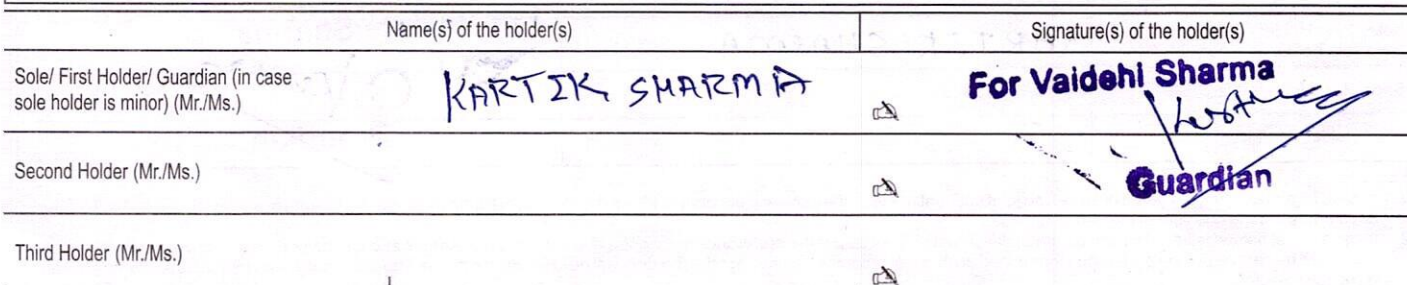 Name(s) of the holder(s) Signature(s) of the holder(s)
Sole/ First Holder/ Guardian (in case
sole holder is minor) (Mr./Ms.)
KARTIK SHARMA
For Vaidehi Sharma
Guardian
Second Holder (Mr./Ms.)
Third Holder (Mr./Ms.)